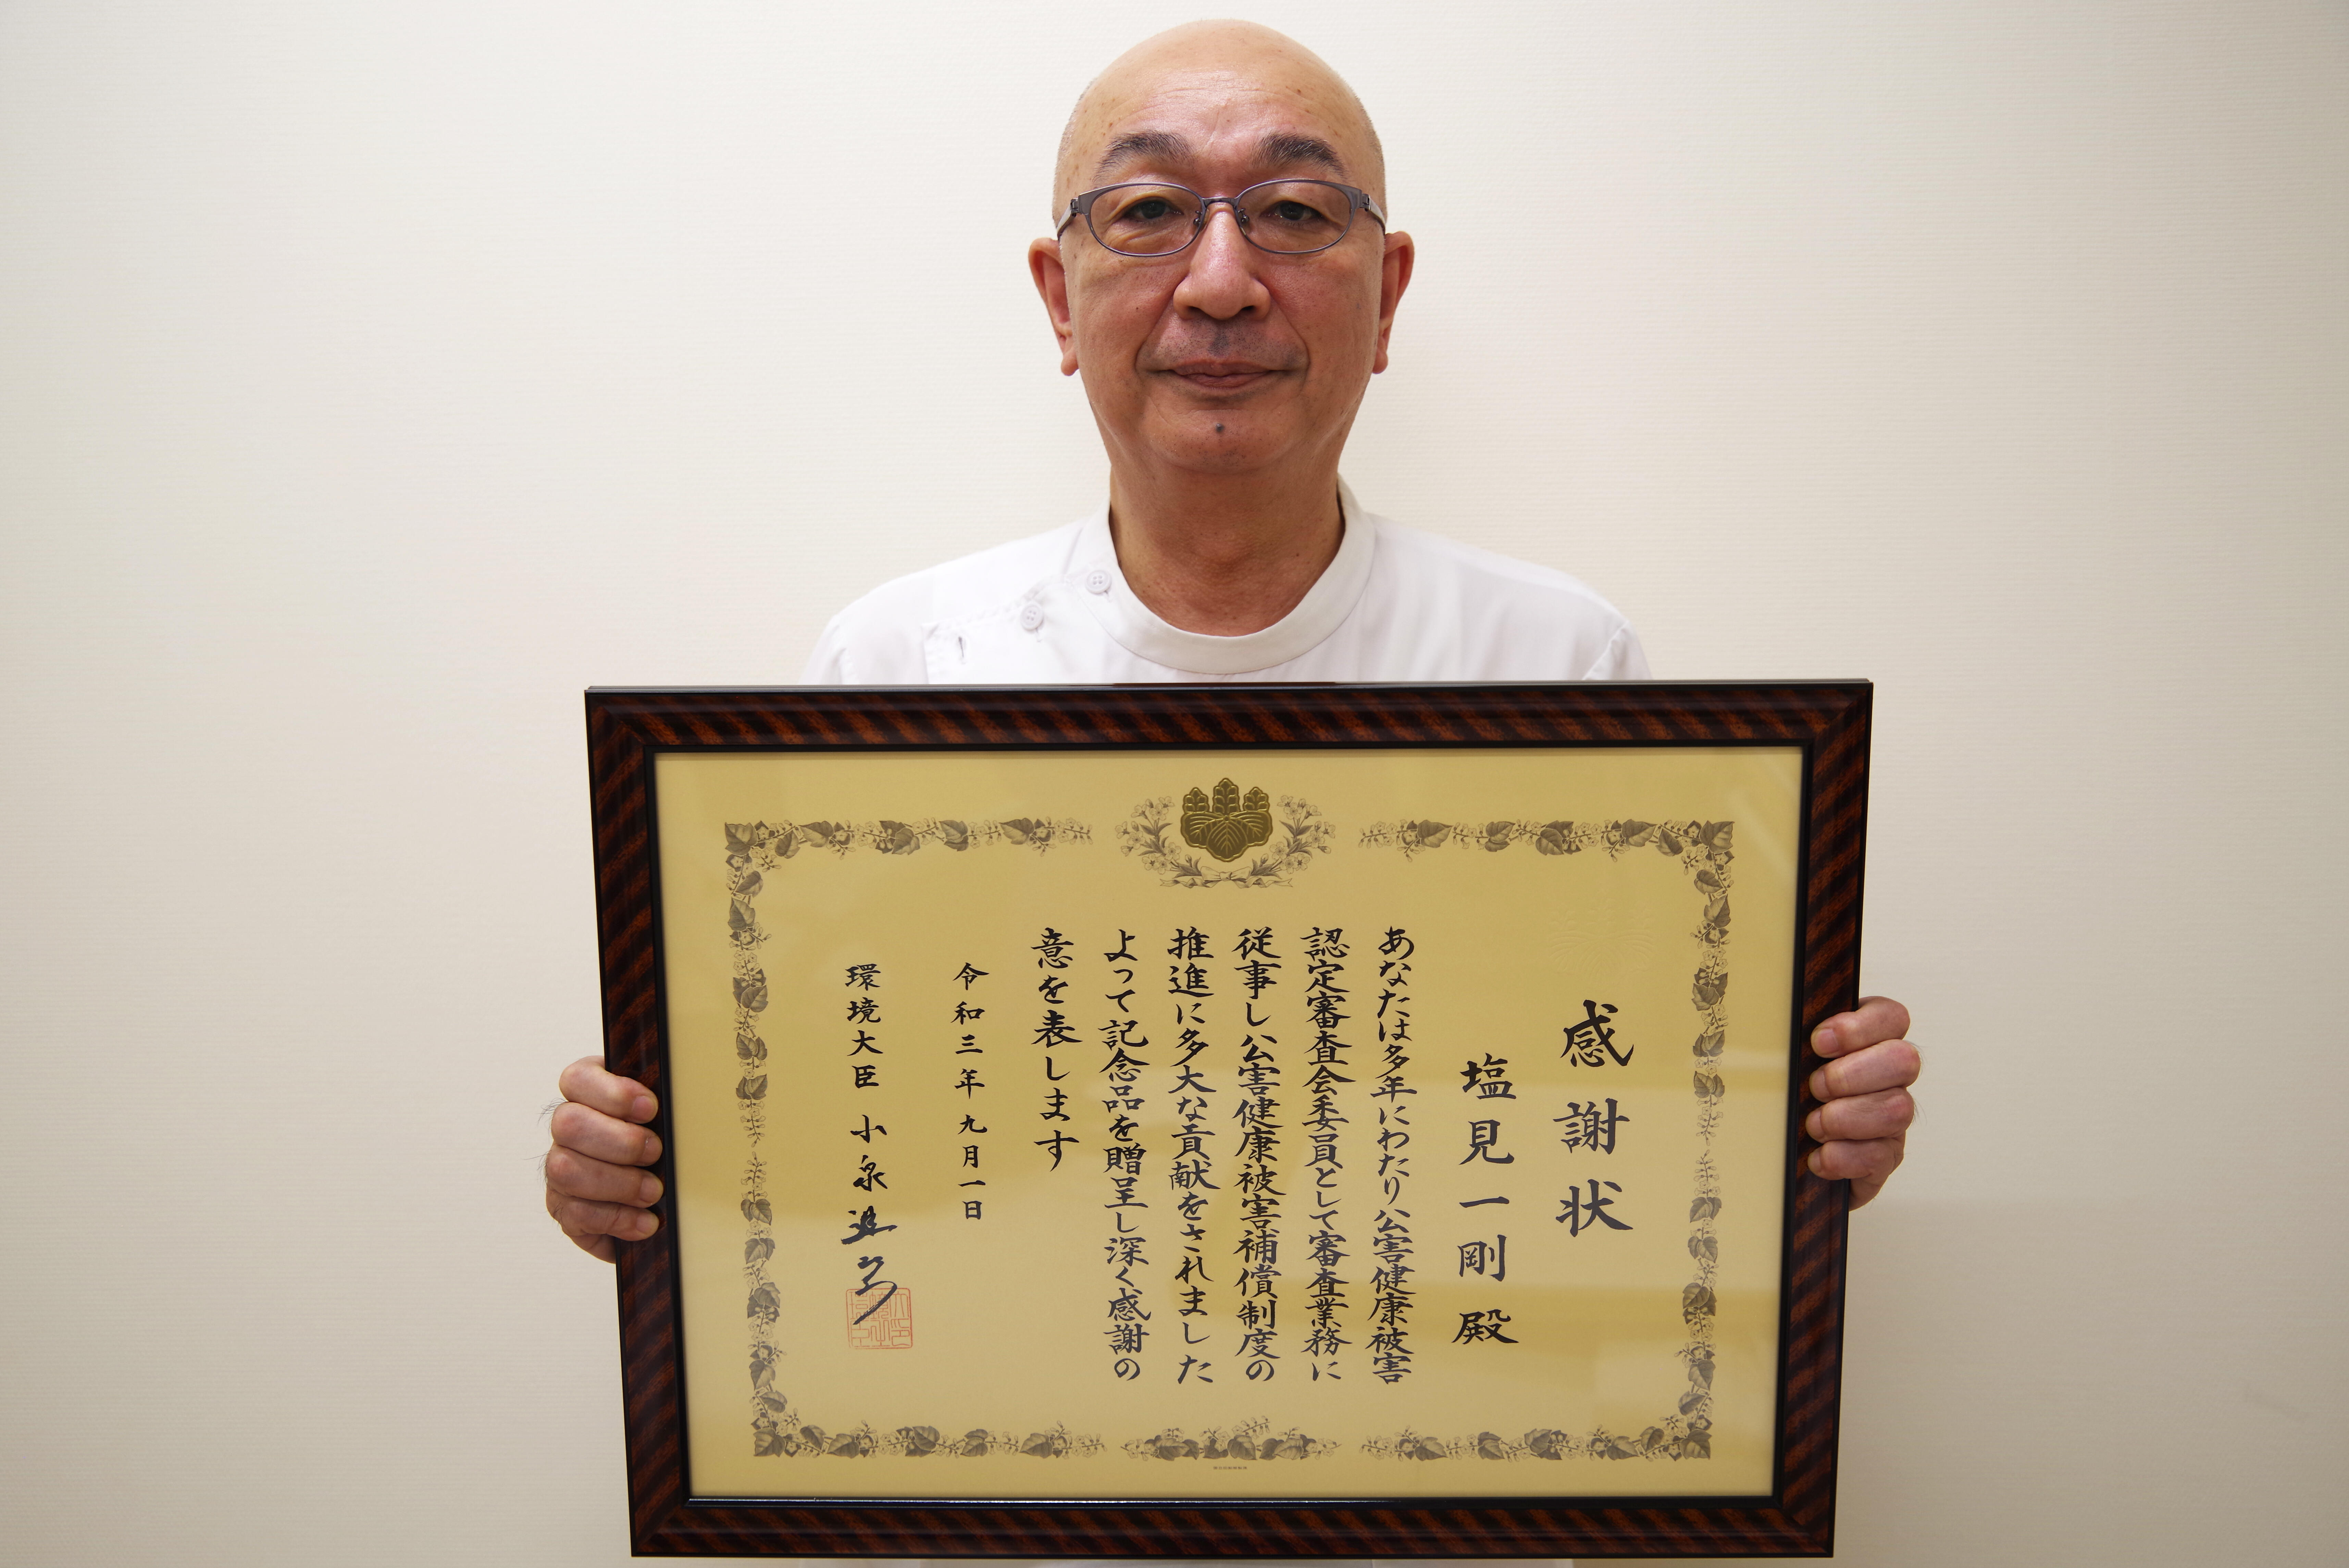 感謝状
塩見一剛 殿
あなたは多年にわたり公害健康被害
認定審査会委員として審査業務に
従事し公害健康被害補償制度の
推進に多大な貢献をされました
よって記念品を贈呈し深く感謝の
意を表します
令和三年九月一日
環境大臣 小泉進次郎